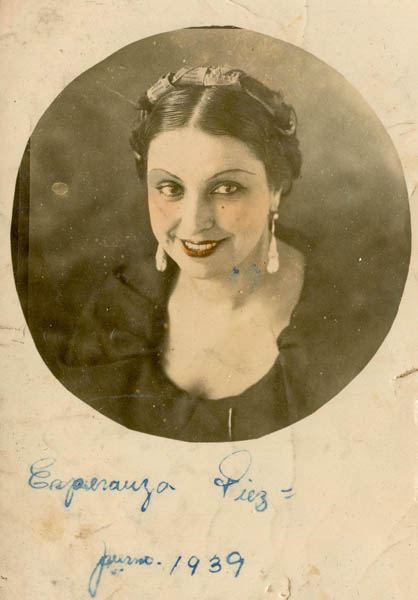 Esperanza Diez =
junio. 1939